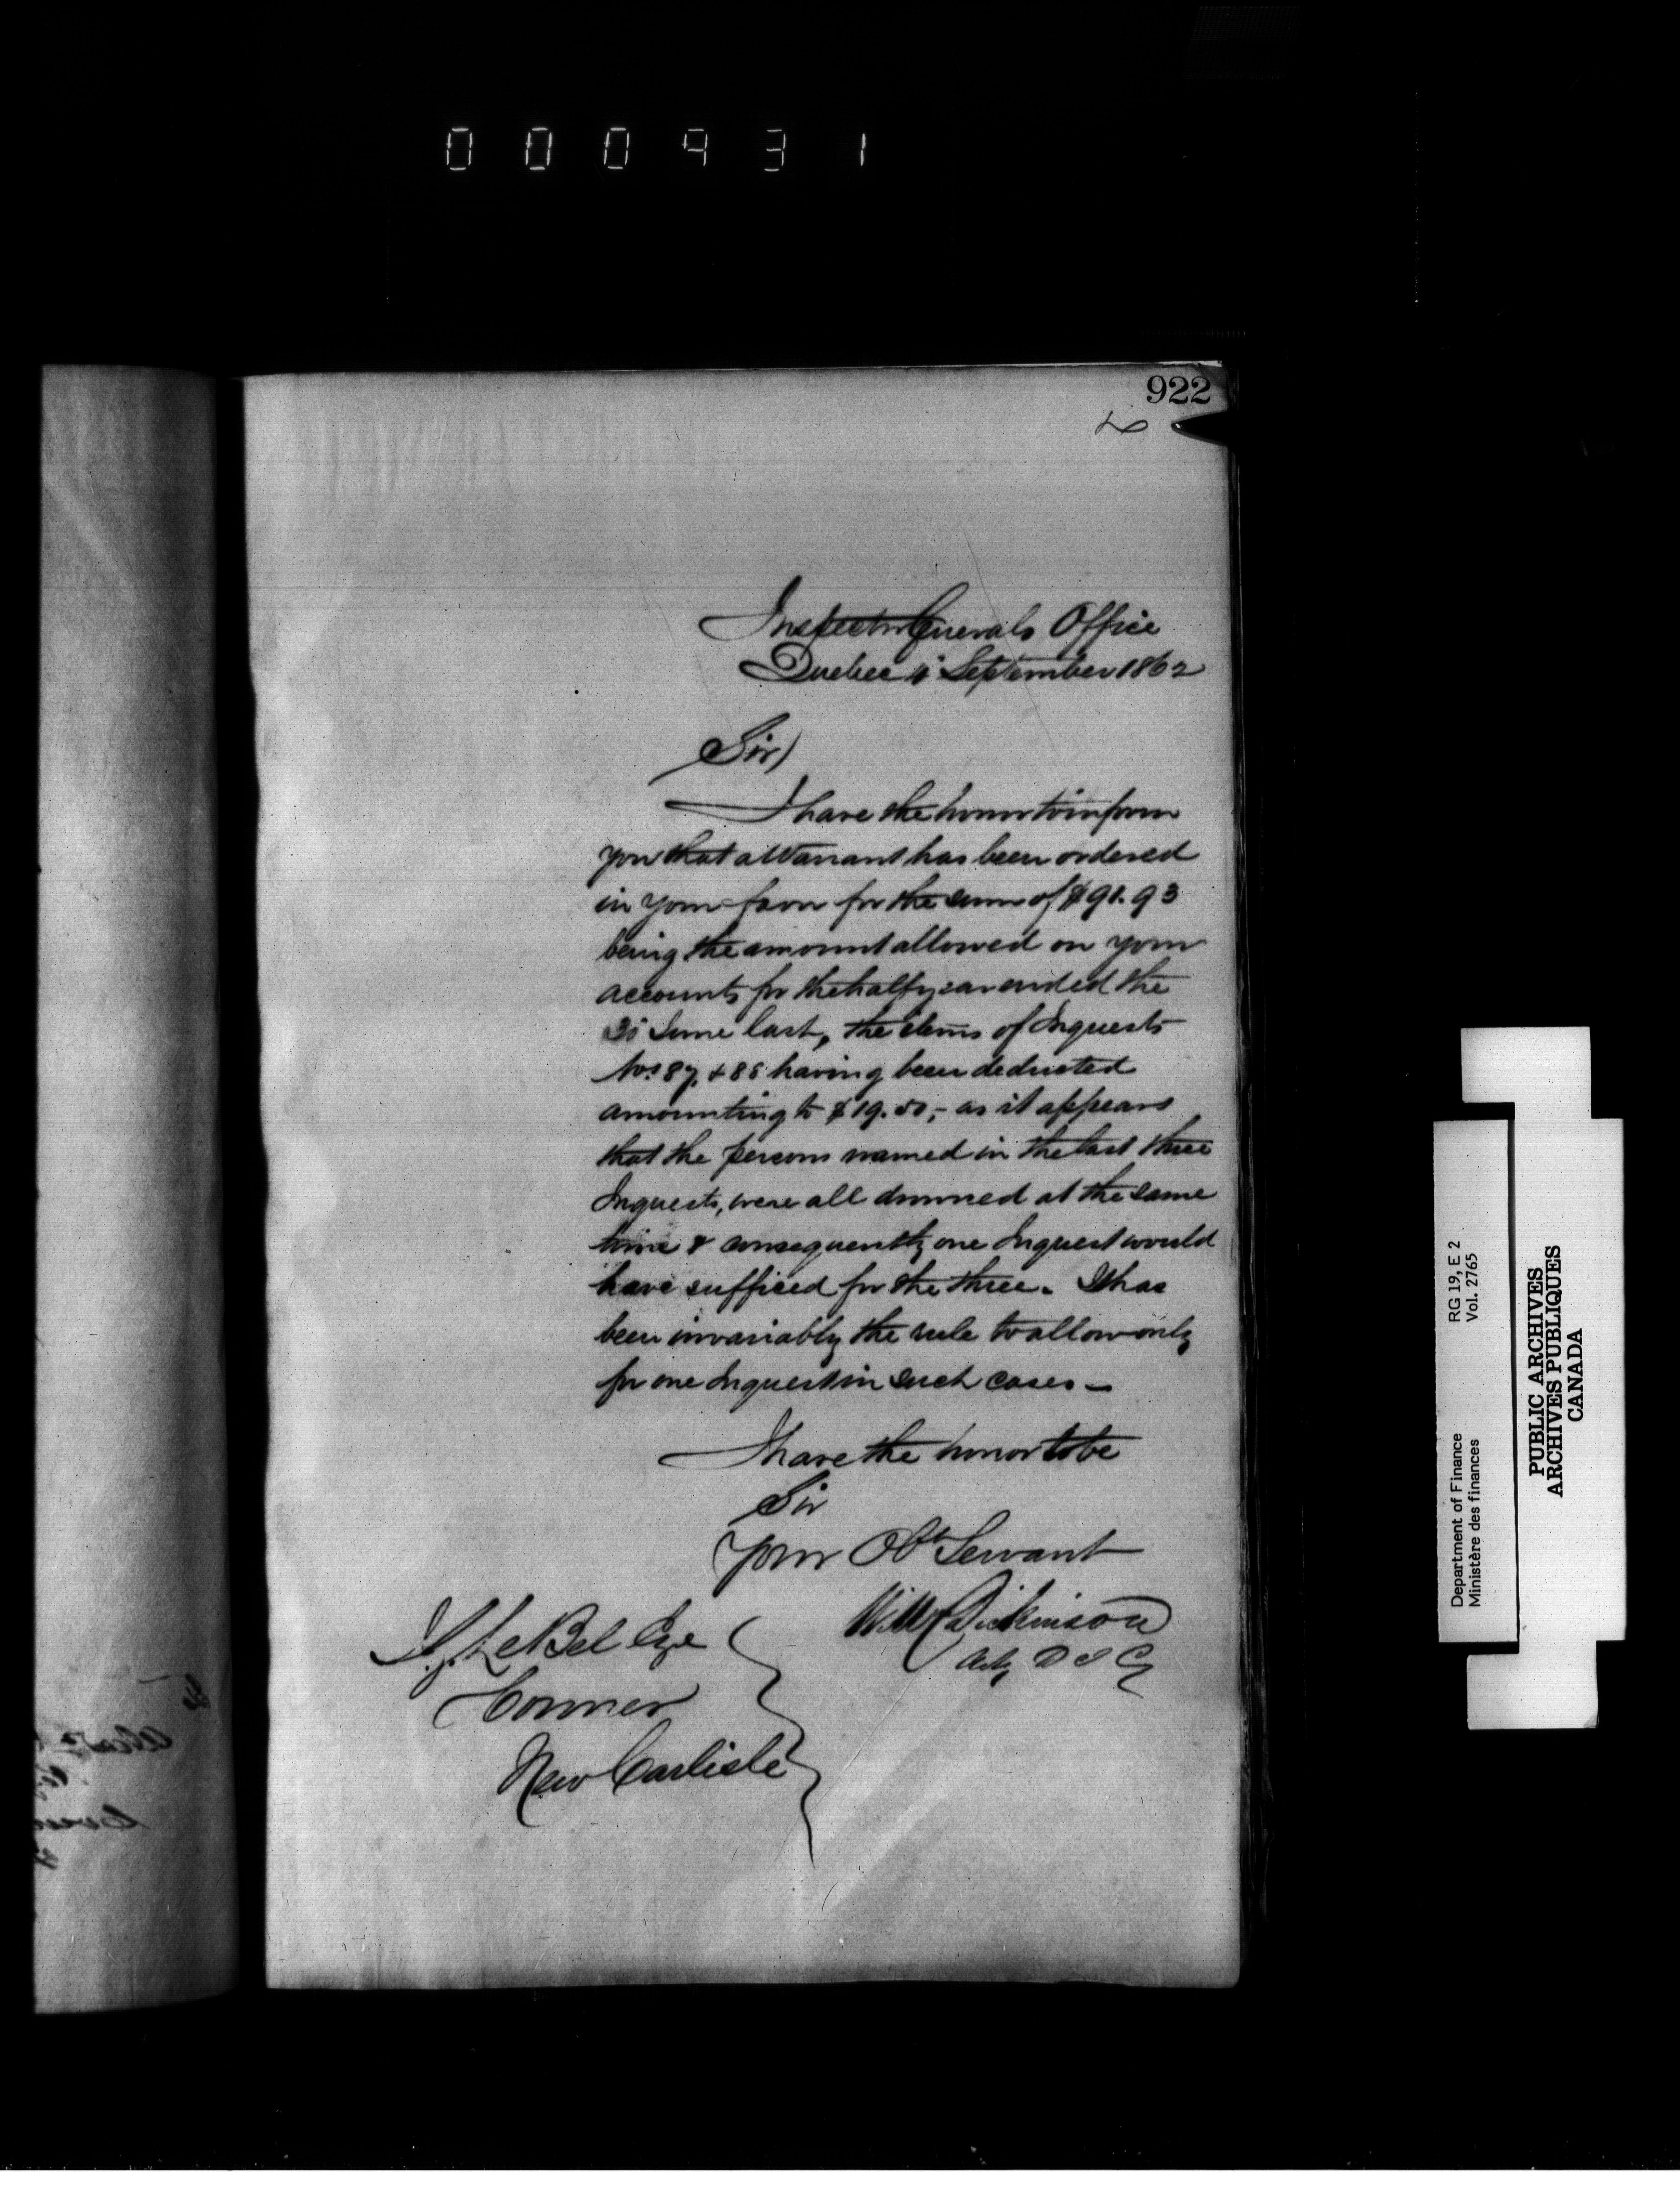 000931
922
Inspector Generals Office
Quebec 1 September 1862
Sir)
I have the honor to inform
you that a Warrant has been ordered
in your favor for the sum of $91.93
being the amount allowed on your
accounts for the half year ended the
30 June last, the items of Inquests
Nos 87, & 88 having been deducted
amounting to $19.50,- as it appears
that the persons named in the last three
Inquests, were all drowned at the same
time & consequently one Inquest would
have sufficed for the three. It has
been invariably the rule to allow only
for one Inquest in such cases -
I have the honor to be
Sir
Your Obt Servant
Wm Dickinson
Actg D I G
J. G. LeBel Eqe
Coroner
New Carlisle
Department of Finance RG 19, E 2
Ministère des finances Vol. 2765
PUBLIC ARCHIVES
ARCHIVES PUBLIQUES
CANADA